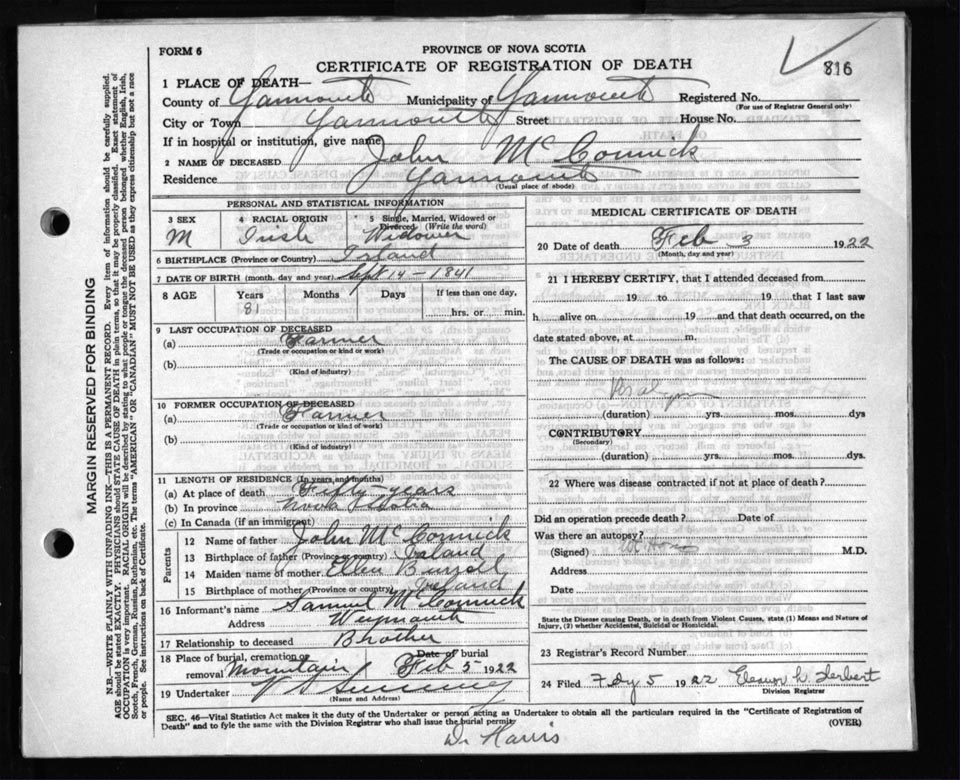 FORM 6
PROVINCE OF NOVA SCOTIA
CERTIFICATE OF REGISTRATION OF DEATH
816
1 PLACE OF DEATH—
County of Yarmouth Municipality of Yarmouth Registered No.
(For use of Registrar General only)
City or Town Yarmouth Street House No.
If in hospital or institution, give name
2 NAME OF DECEASED John McCormick
Residence Yarmouth
(Usual place of abode)
PERSONAL AND STATISTICAL INFORMATION
3 SEX 4 RACIAL ORIGIN 5 Single, Married, Widowed or Divorced (Write the word)
M Irish Widower
6 BIRTHPLACE (Province or Country) Irland
7 DATE OF BIRTH (month, day and year) Sept 14 - 1841
8 AGE Years Months Days If less than one day,
81 hrs. or min.
9 LAST OCCUPATION OF DECEASED
(a) Farmer
(Trade or occupation or kind or work)
(b)
(Kind of industry)
10 FORMER OCCUPATION OF DECEASED
(a) Farmer
(Trade or occupation or kind or work)
(b)
(Kind of industry)
11 LENGTH OF RESIDENCE (In years and months)
(a) At place of death Fifty years
(b) In province Nova Scotia
(c) In Canada (if an immigrant)
Parents
12 Name of father John McCormick
13 Birthplace of father (Province or country) Ireland
14 Maiden name of mother Ellen
15 Birthplace of mother (Province or country) Ireland
16 Informant's name Samuel McCormick
Address Weymouth
17 Relationship to deceased Brother
18 Place of burial, cremation or removal Mountain Date of burial Feb 5 1922
19 Undertaker V S Sweeney
(Name and Address)
MEDICAL CERTIFICATE OF DEATH
20 Date of death Feb 3 1922
(Month, day and year)
21 I HEREBY CERTIFY, that I attended deceased from
19 to 19 that I last saw
h alive on 19 and that death occurred, on
date stated above, at m.
The CAUSE OF DEATH was as follows:
(duration) yrs. mos. dys
CONTRIBUTORY
(Secondary)
(duration) yrs. mos. dys.
22 Where was disease contracted if not at place of death?
Did an operation precede death? Date of
Was there an autopsy?
(Signed) M.D.
Address
Date
State the Disease causing Death, or in death from Violent Causes, state (1) Means and Nature of
Injury, (2) whether Accidental, Suicidal or Homicidal.
23 Registrar's Record Number
24 Filed 5 1922 Eleanor L. Herbert
Division Registrar
SEC. 46—Vital Statistics Act makes it the duty of the Undertaker or person acting as Undertaker to obtain all the particulars required in the "Certificate of Registration of
Death" and to fyle the same with the Division Registrar who shall issue the burial permit.
(OVER)
Dr Harris
MARGIN RESERVED FOR BINDING
N.B.—WRITE PLAINLY WITH UNFADING INK—THIS IS A PERMANENT RECORD. Every item of information should be carefully supplied.
AGE should be stated EXACTLY. PHYSICIANS should STATE CAUSE OF DEATH in plain terms, so that it may be properly classified. Exact statement of
OCCUPATION is very important. RACIAL ORIGIN will be described by stating to what people or tongue the deceased person belonged whether English, Irish,
Scotch, French, German, Russian, Ruthenian, etc. The terms "AMERICAN" OR "CANADIAN" MUST NOT BE USED as they express citizenship but not a race
or people. See instructions on back of Certificate.